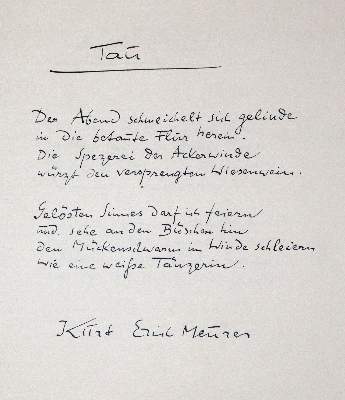 Tau
Der Abend schmeichelt sich gelinde
in die betaute Flur herein.
Die Spezerei der Ackerwinde
würzt den versprengten Wiesenwein.
Gelösten Sinnes darf ich feiern
und sehe an den Büschen hin
Den Mückenschwarm im Winde schleiern
wie eine weiße Tänzerin.
Kurt Erich Meurer